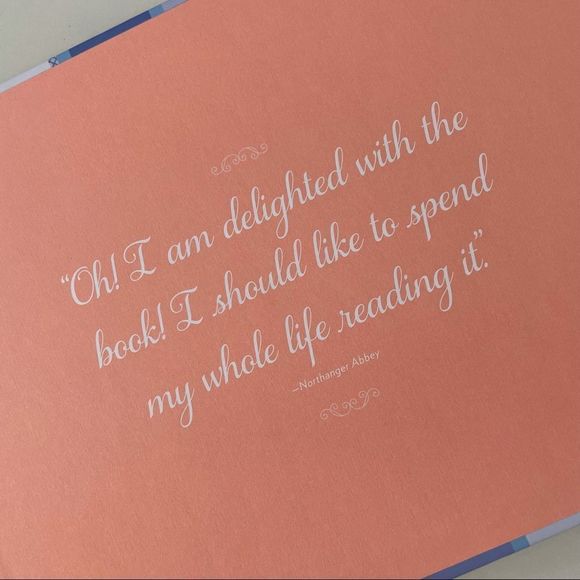 “Oh! I am delighted with the
book! I should like to spend
my whole life reading it.”
—Northanger Abbey